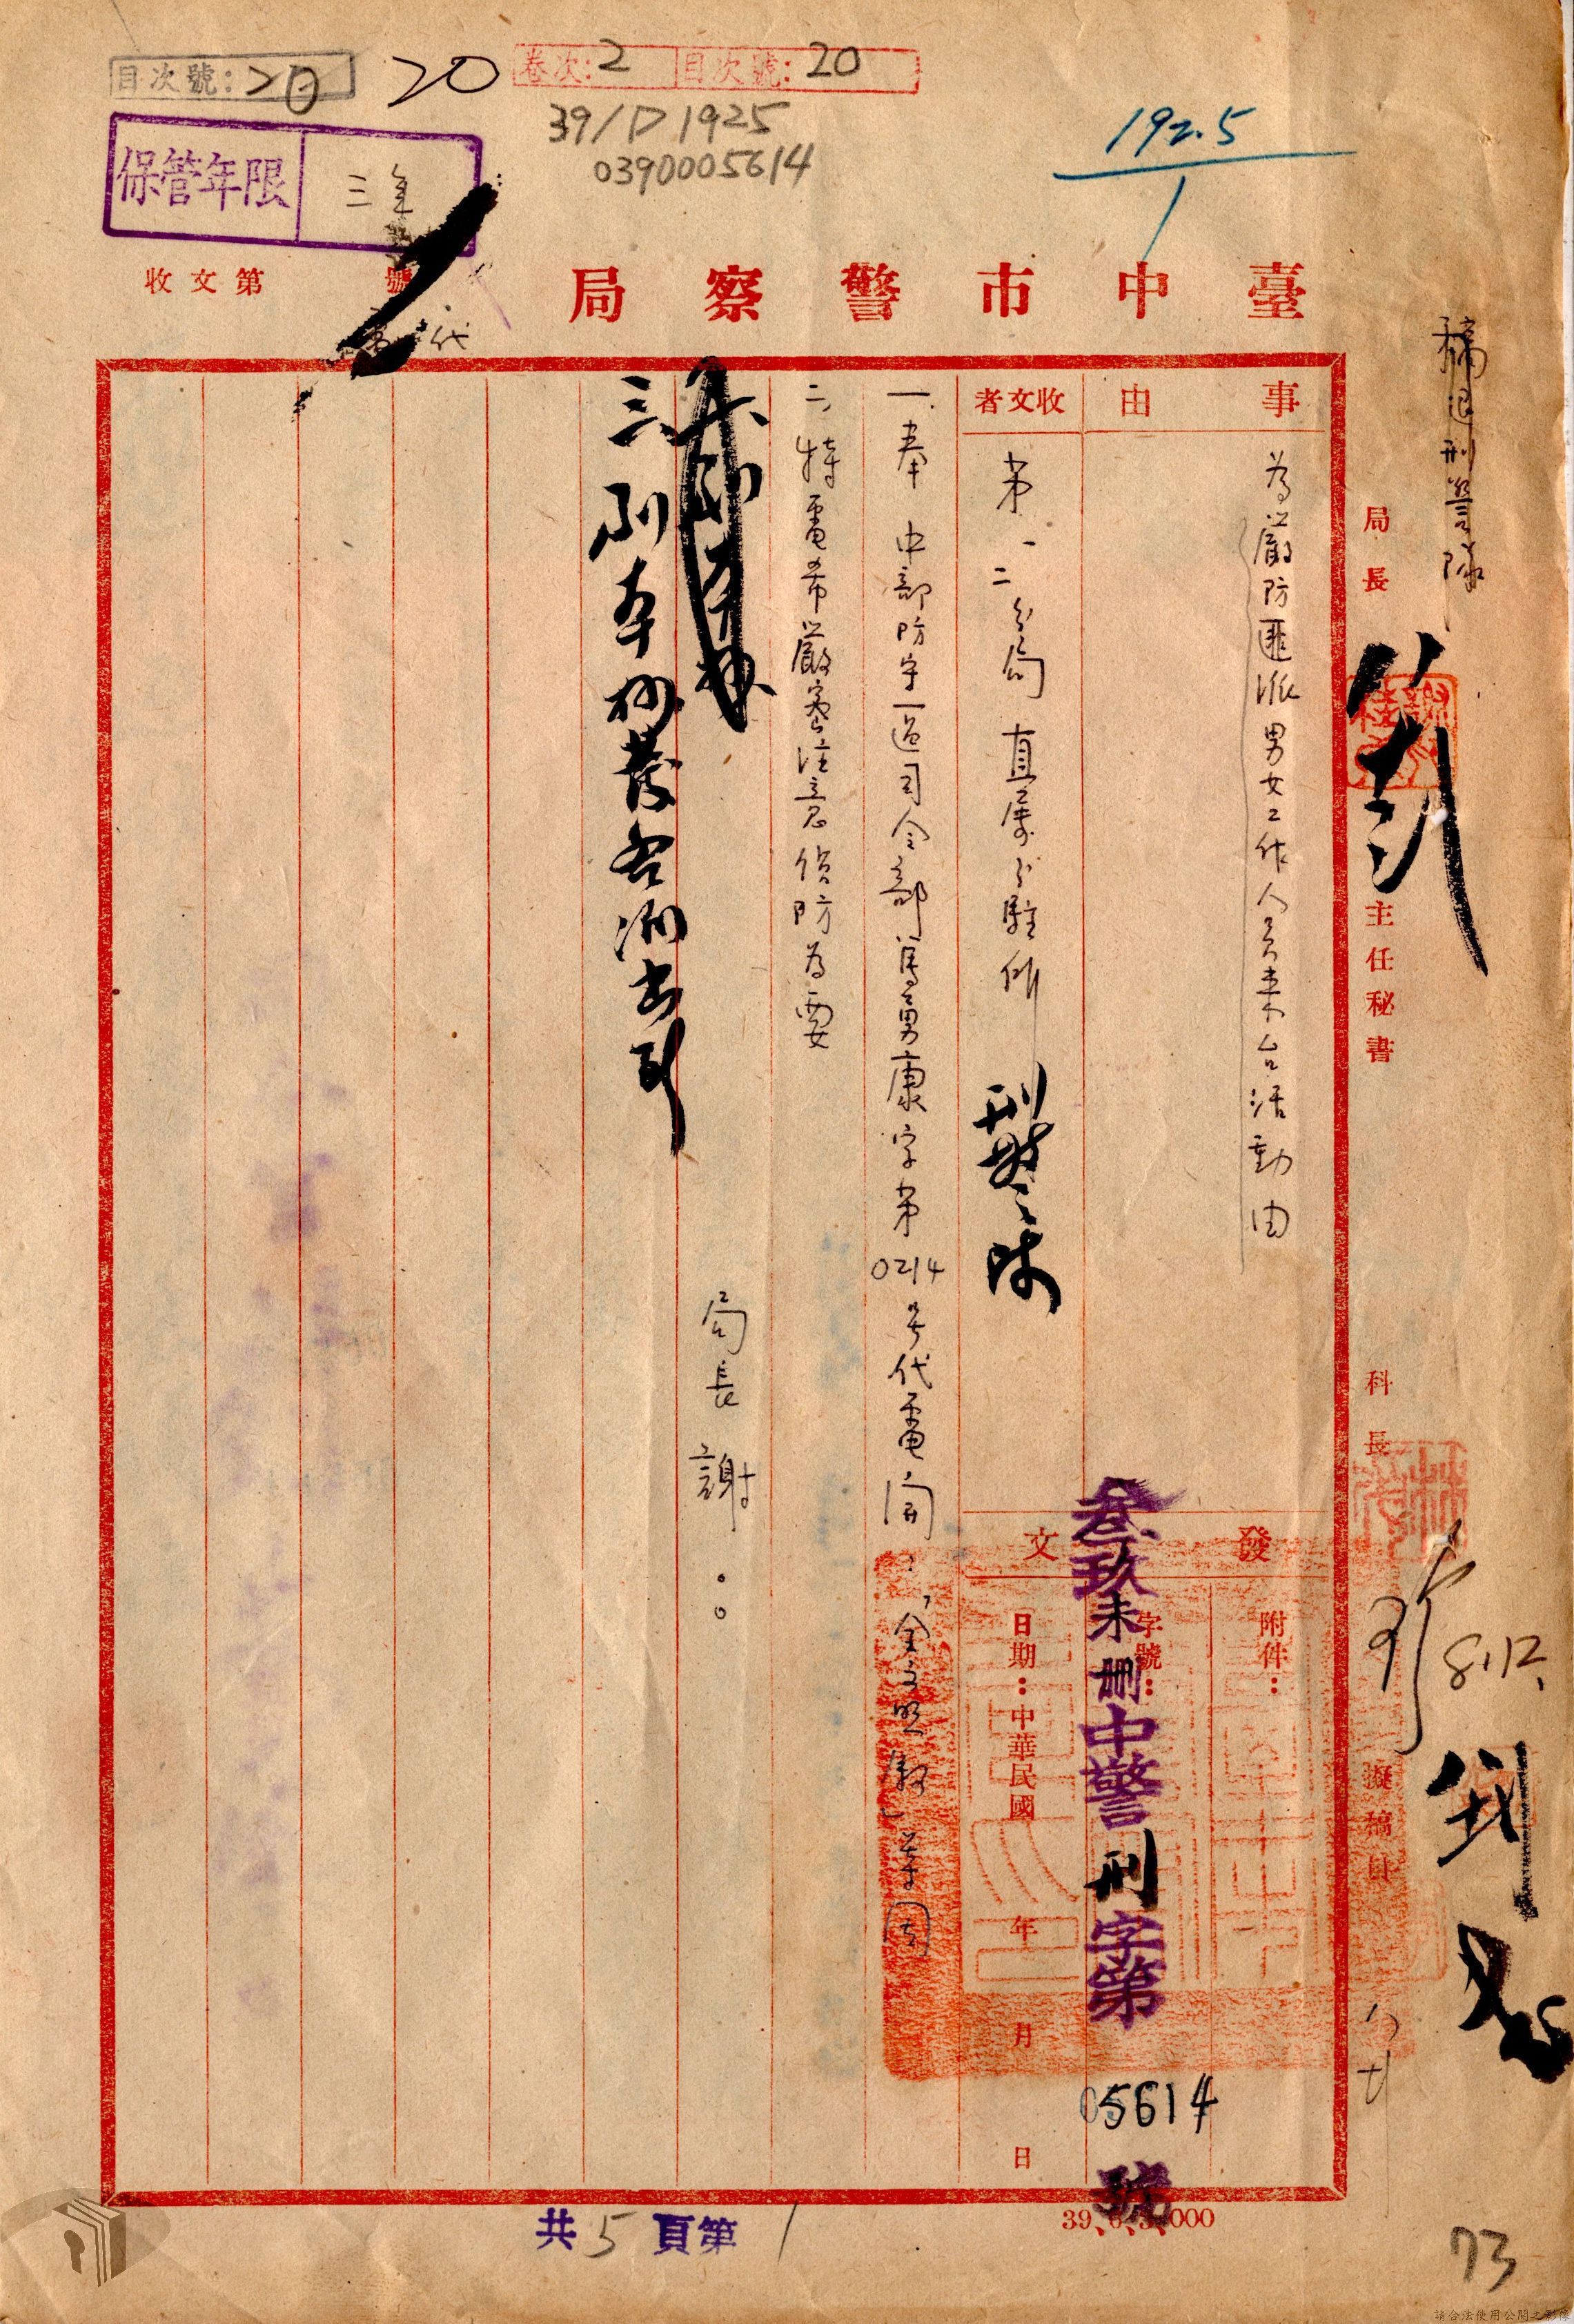 目次號：20
20
卷次：2 目次號：20
39/D 1925
0390005614
192.5
1
保管年限 三年
臺中市警察局
收文第 號
代
稿退刑警隊
局長
主任秘書
科長
8.12.
擬稿員
事由
為嚴防匪派男女工作人員来台活動由
收文者
第一二分局 直属分駐所 刑警隊
發文
附件：
字號：
叁玖未刪中警刑字第05614號
日期：中華民國 年 月 日
一、奉 中部防守區司令部馬勇康字第0214号代電開：「全文照敘」等因
二、特電希嚴密注意偵防為要
三、
局長 謝。。
共5頁第1
39、6、3、000
73
請合法使用公開之影像